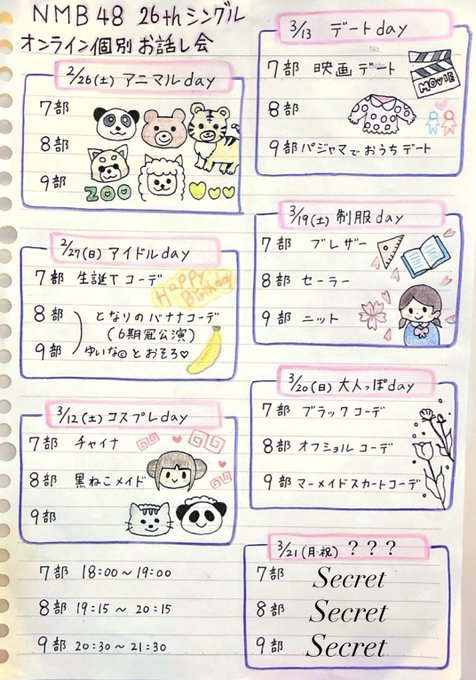 NMB48 26thシングル
オンライン個別お話し会
2/26(土) アニマルday
7部
8部
9部
ZOO
2/27(日) アイドルday
7部 生誕Tコーデ
Happy
Birthday
8部 となりのバナナコーデ
(6期冠公演)
9部 ゆいな㋹とおそろ♡
3/12(土) コスプレday
7部 チャイナ
8部 黒ねこメイド
9部
7部 18:00~19:00
8部 19:15~20:15
9部 20:30~21:30
3/13 デートday
No.
7部 映画デート
MOVIE
8部
9部 パジャマでおうちデート
3/19(土) 制服day
7部 ブレザー
8部 セーラー
9部 ニット
3/20(日) 大人っぽday
7部 ブラックコーデ
8部 オフショルコーデ
9部 マーメイドスカートコーデ
3/21(月・祝) ???
7部 Secret
8部 Secret
9部 Secret